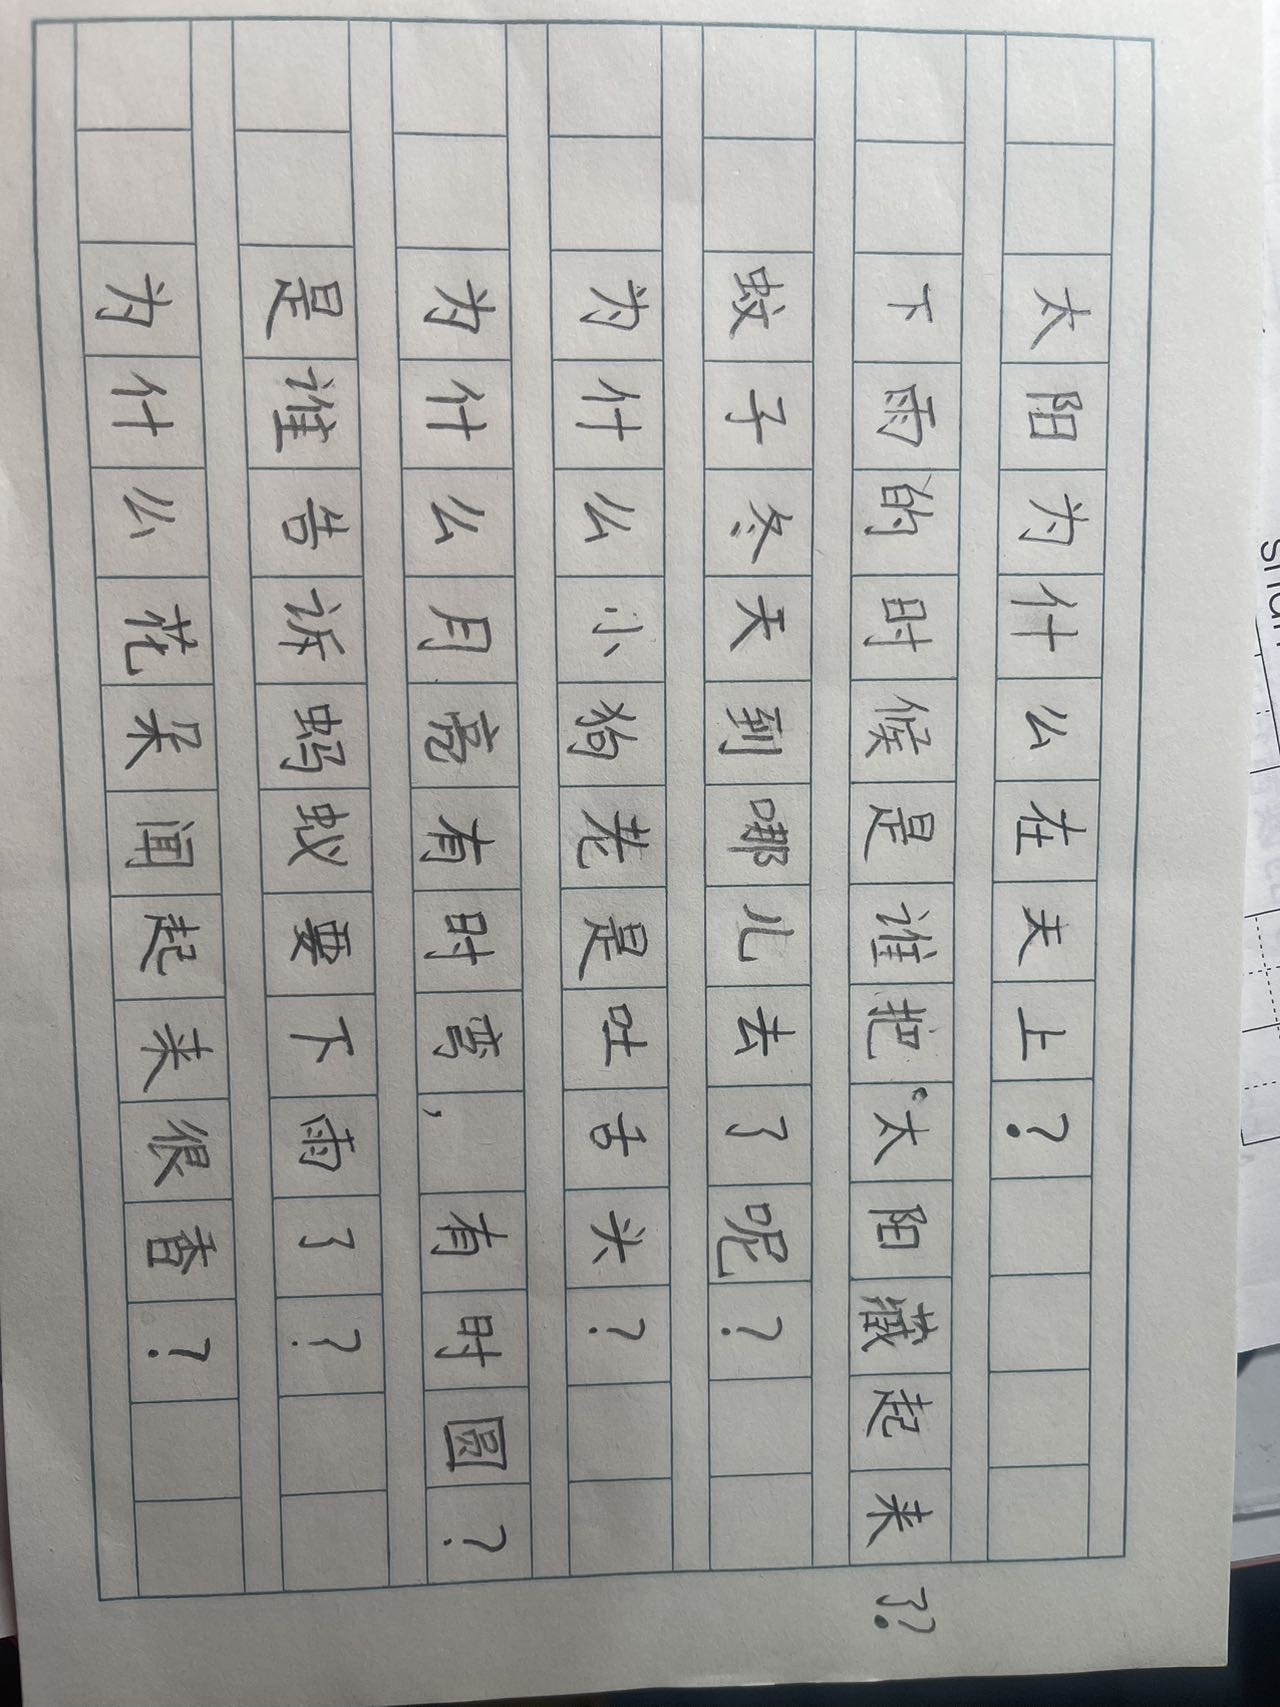 太阳为什么在夫上？
下雨的时候是谁把太阳藏起来了？
蚊子冬天到哪儿去了呢？
为什么小狗老是吐舌头？
为什么月亮有时弯，有时圆？
是谁告诉蚂蚁要下雨了？
为什么花朵闻起来很香？